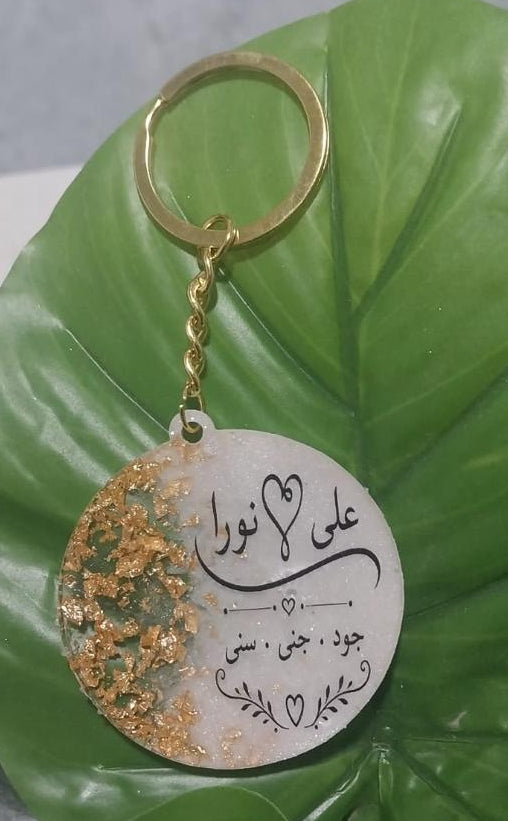 علی نورا
جود . جنی . سنی